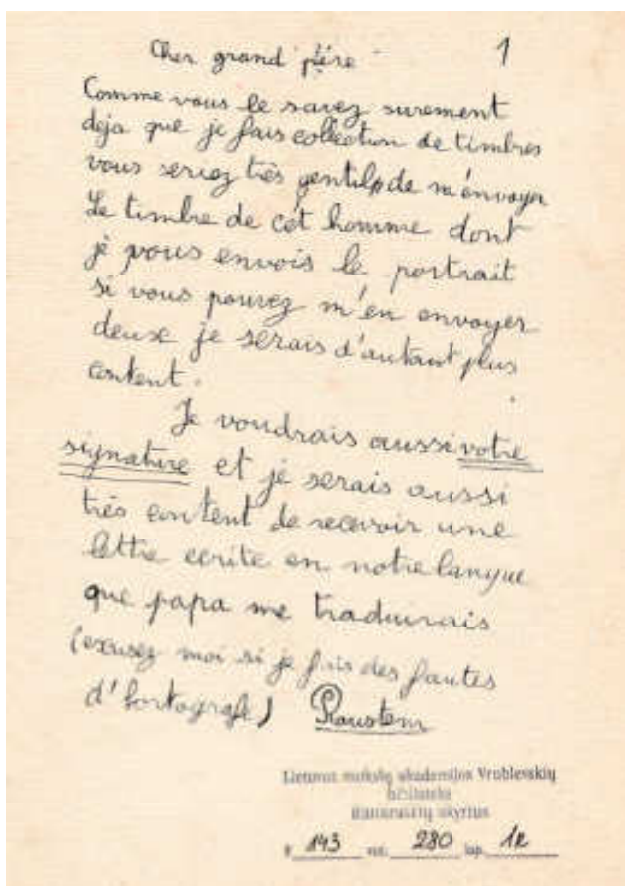 Cher grand'père 1
Comme vous le savez surement
deja que je fais collection de timbres
vous seriez très gentil de m'envoyer
Le timbre de cét homme dont
je vous envois le portrait
si vous pouvez m'en envoyer
deuse je serais d'autant plus
content.
Je voudrais aussi votre
signature et je serais aussi
très content de recevoir une
lettre ecrite en notre langue
que papa me traduirais
(exusez moi si je fais des fautes
d'hortografe) Roustem
Lietuvos mokslų akademijos Vroblevskių
biblioteka
Rankraščių skyrius
F 143 vnt. 280 lap. 1r